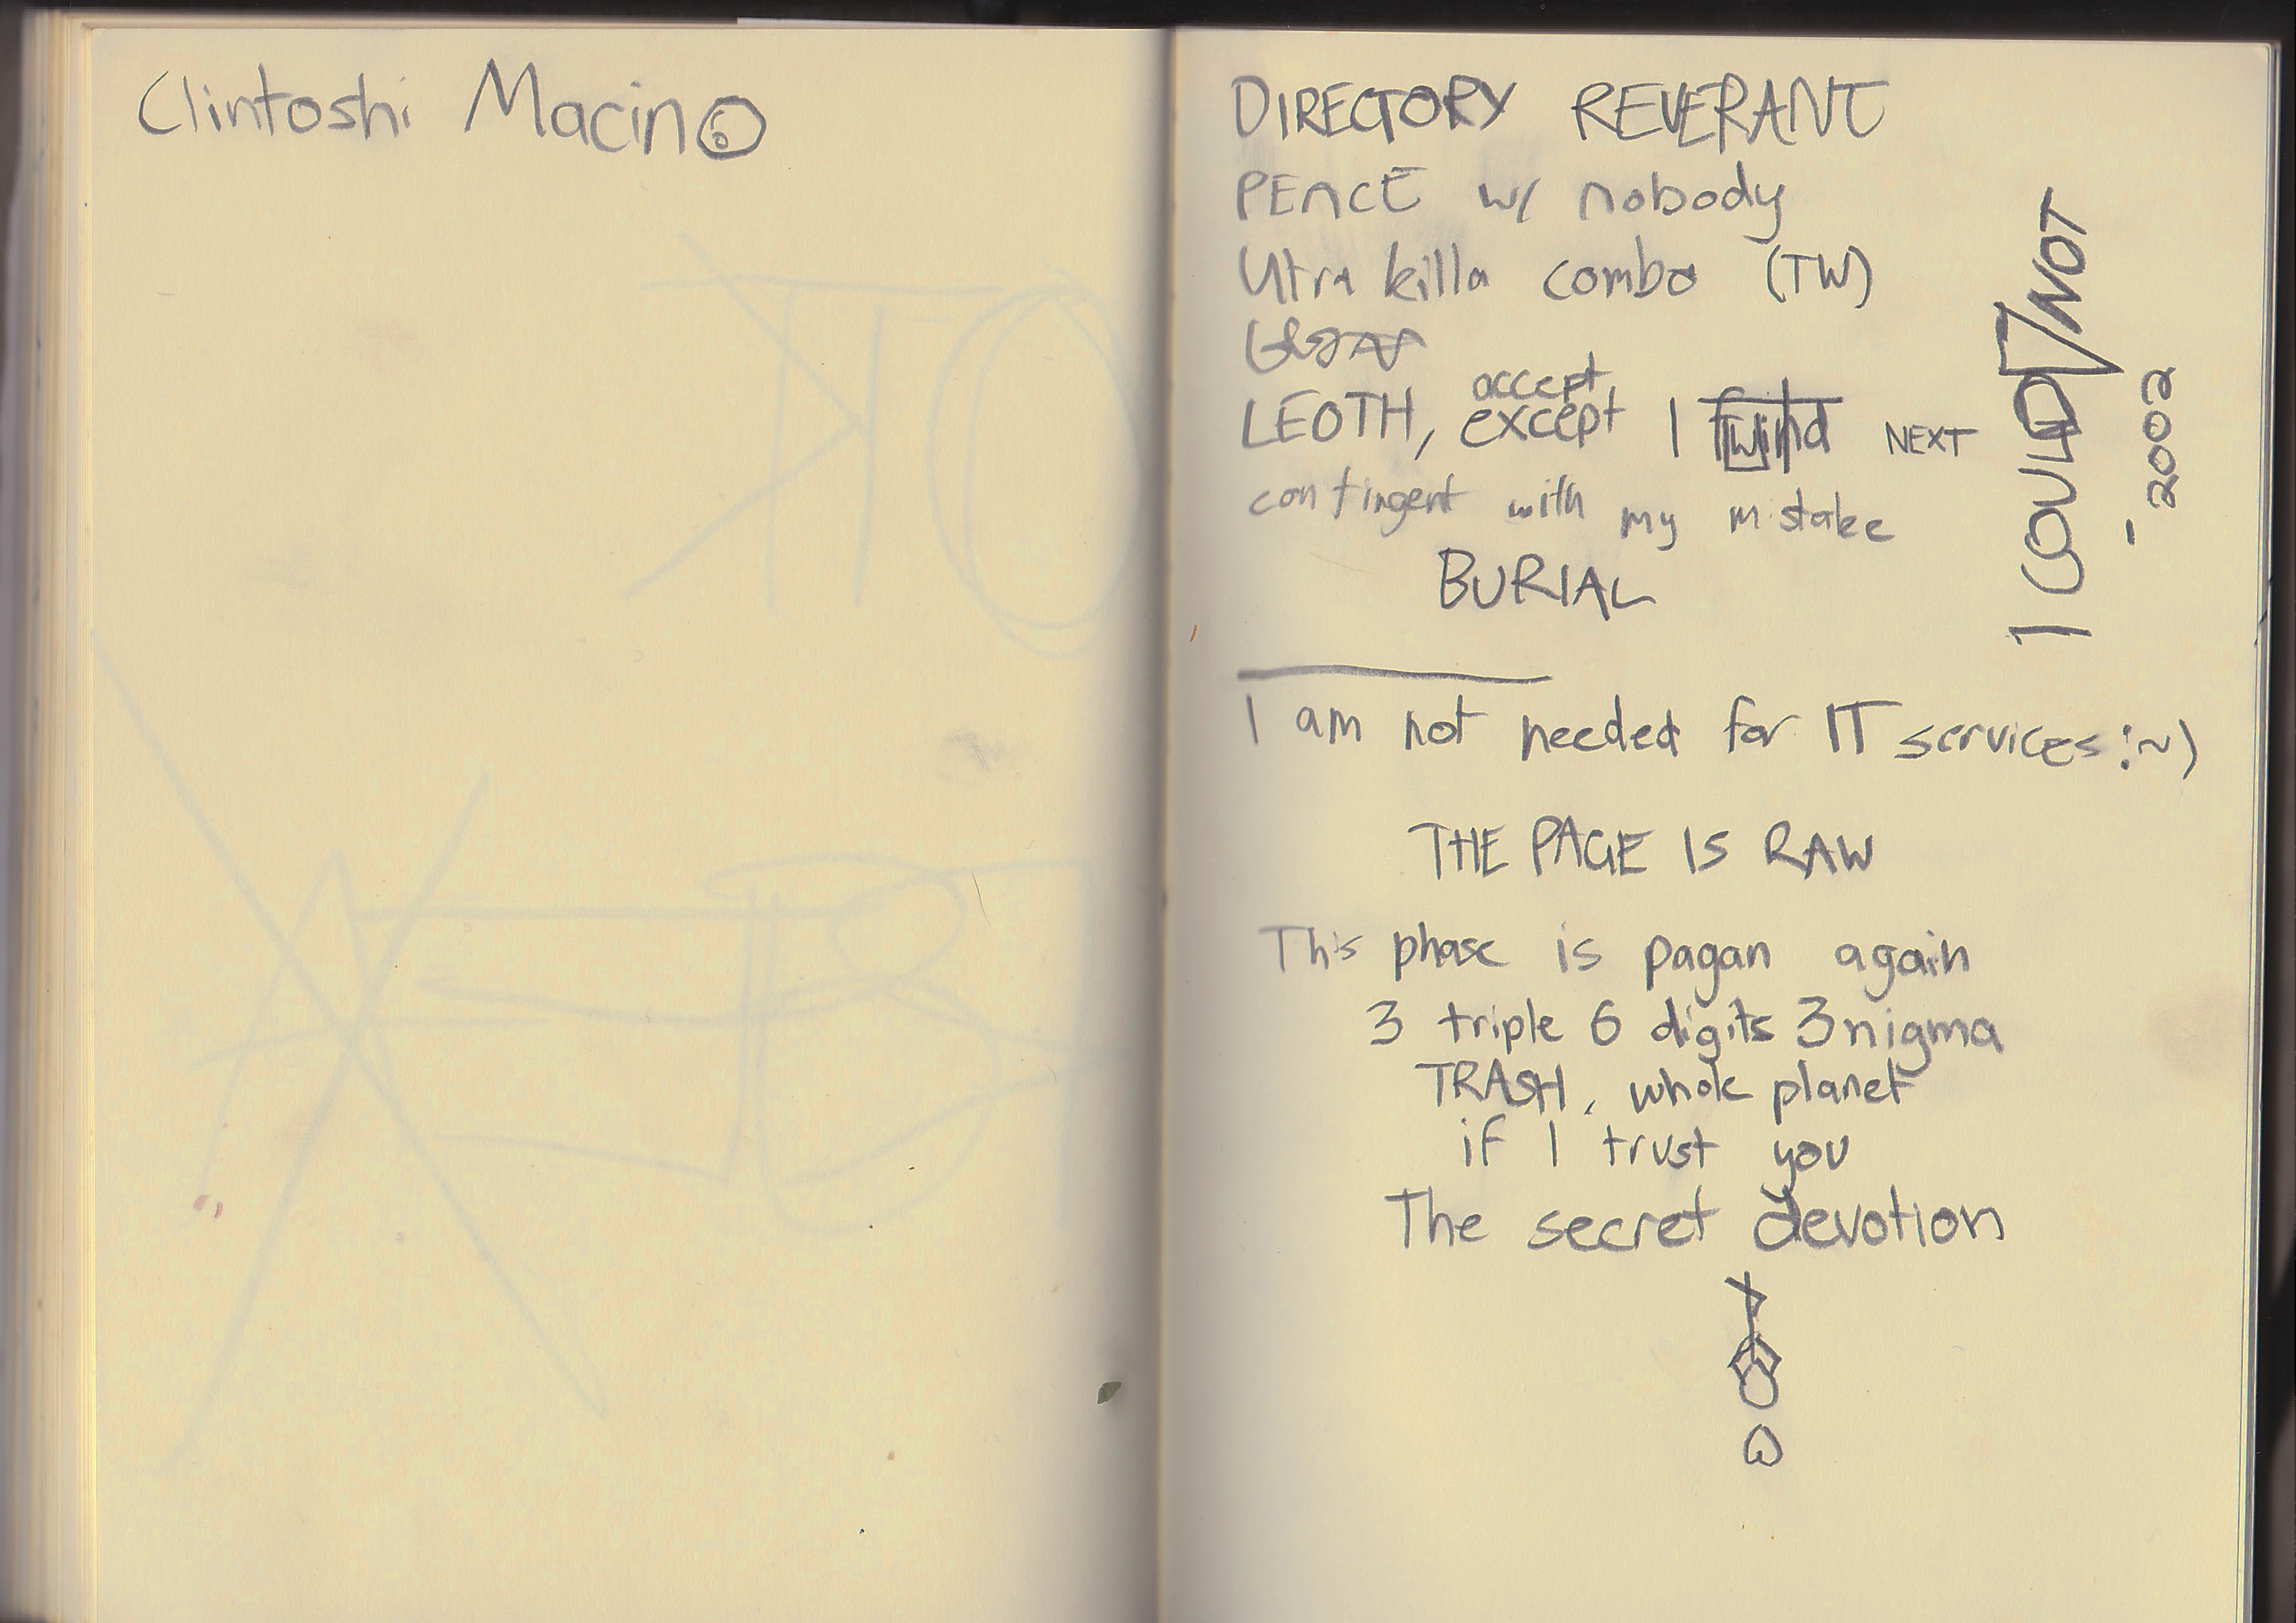 Clintoshi Macino
6
DIRECTORY REVERANT
PENCE w/ nobody
Utra killa combo (TW)
accept
LEOTH, except I NEXT
contingent with my mistake
BURIAL
I COULD/NOT
- 2002
I am not needed for IT services :~)
THE PAGE IS RAW
This phase is pagan again
3 triple 6 digits 3nigma
TRASH, whole planet
if I trust you
The secret devotion